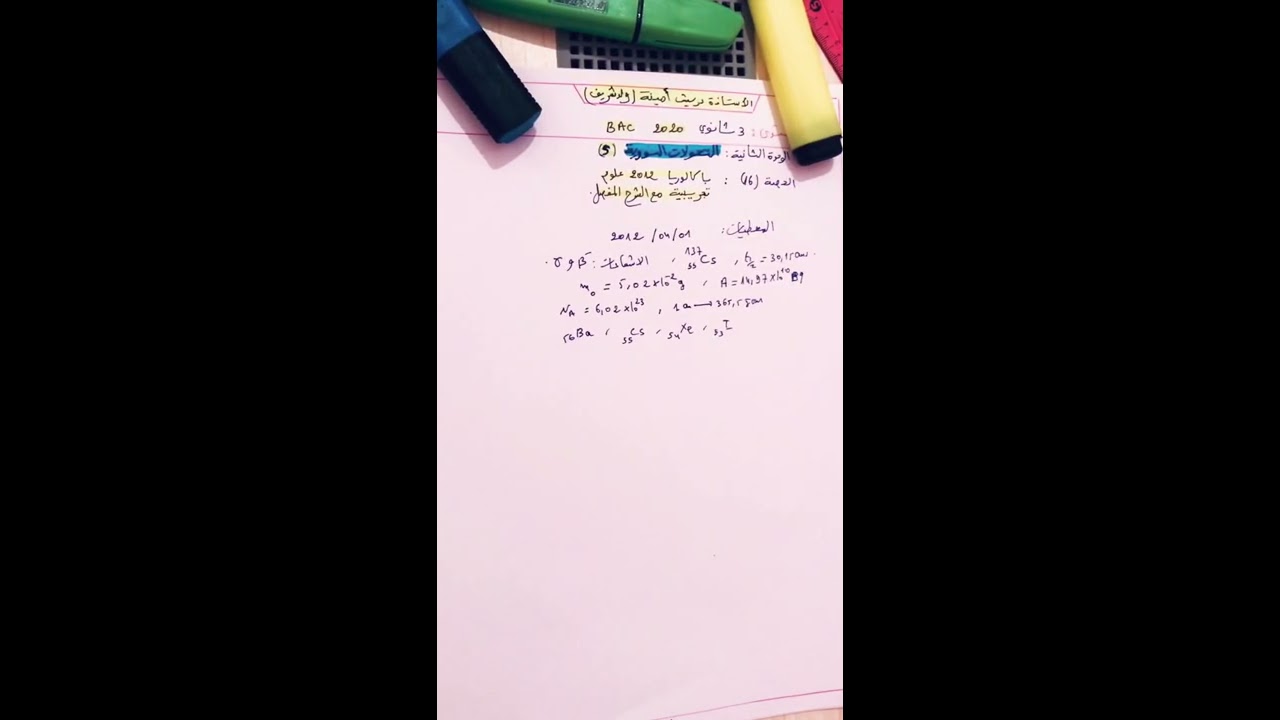 الأستاذة دريبت أمينة (ولد شريف)
3 ثانوي BAC 2020
الوحدة الثانية: التحولات النووية (5)
الحصة (16): باكالوريا 2012 علوم
تجريبية مع الشرح المفصل.
المعطيات: 2012/04/01
t1/2 = 30,15 ans , 137 55 Cs , الاشعاعات: β⁻ و γ .
m₀ = 5,02×10⁻² g , A = 14,97×10¹⁰ Bq
NA = 6,02×10²³ , 1a → 365,5 jour
56Ba , 55Cs , 54Xe , 53I